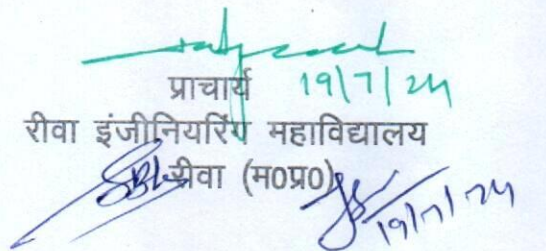 प्राचार्य 19/7/24
रीवा इंजीनियरिंग महाविद्यालय
रीवा (म0प्र0)
19/7/24